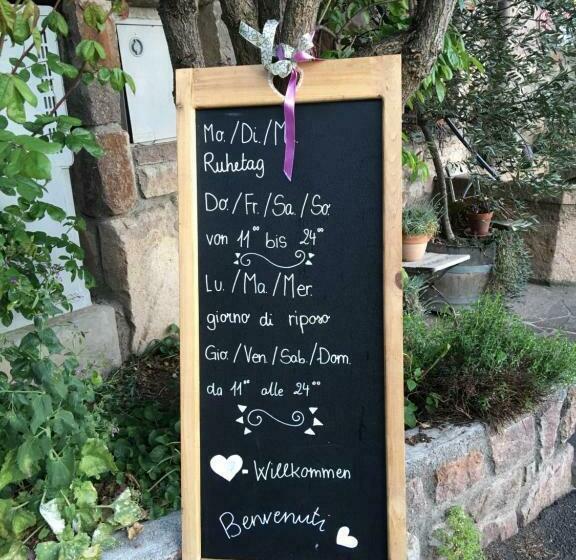 Mo./Di./M
Ruhetag
Do./Fr./Sa./So.
von 11°° bis 24°°
Lu./Ma./Mer.
giorno di riposo
Gio./Ven./Sab./Dom.
da 11°° alle 24°°
- Willkommen
Benvenuti